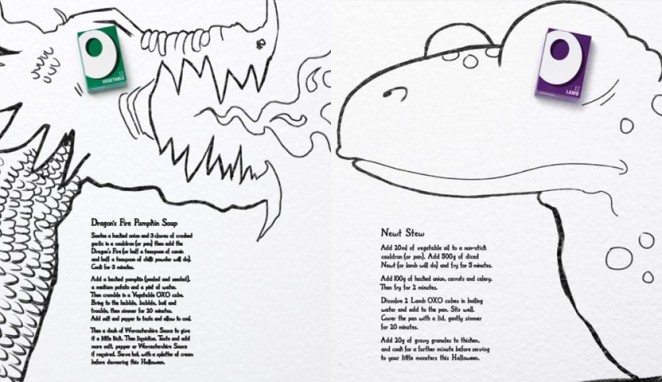 VEGETABLE
Dragon's Fire Pumpkin Soup
Sautee a halved onion and 3 cloves of crushed
garlic in a cauldron (or pan) then add the
Dragon's Fire (or half a teaspoon of cumin
and half a teaspoon of chilli powder will do).
Cook for 3 minutes.
Add a halved pumpkin (peeled and seeded),
a medium potato and a pint of water.
Then crumble in a Vegetable OXO cube.
Bring to the bubble, bubble, boil and
trouble, then simmer for 20 minutes.
Add salt and pepper to taste and allow to cool.
Then a dash of Worcestershire Sauce to give
it a little kick. Then liquidise. Taste and add
more salt, pepper or Worcestershire Sauce
if required. Serve hot, with a splatter of cream
before devouring this Halloween.
LAMB
Newt Stew
Add 20ml of vegetable oil to a non-stick
cauldron (or pan). Add 500g of diced
Newt (or lamb will do) and fry for 5 minutes.
Add 100g of halved onion, carrots and celery.
Then fry for 2 minutes.
Dissolve 2 Lamb OXO cubes in boiling
water and add to the pan. Stir well.
Cover the pan with a lid, gently simmer
for 20 minutes.
Add 20g of gravy granules to thicken,
and cook for a further minute before serving
to your little monsters this Halloween.